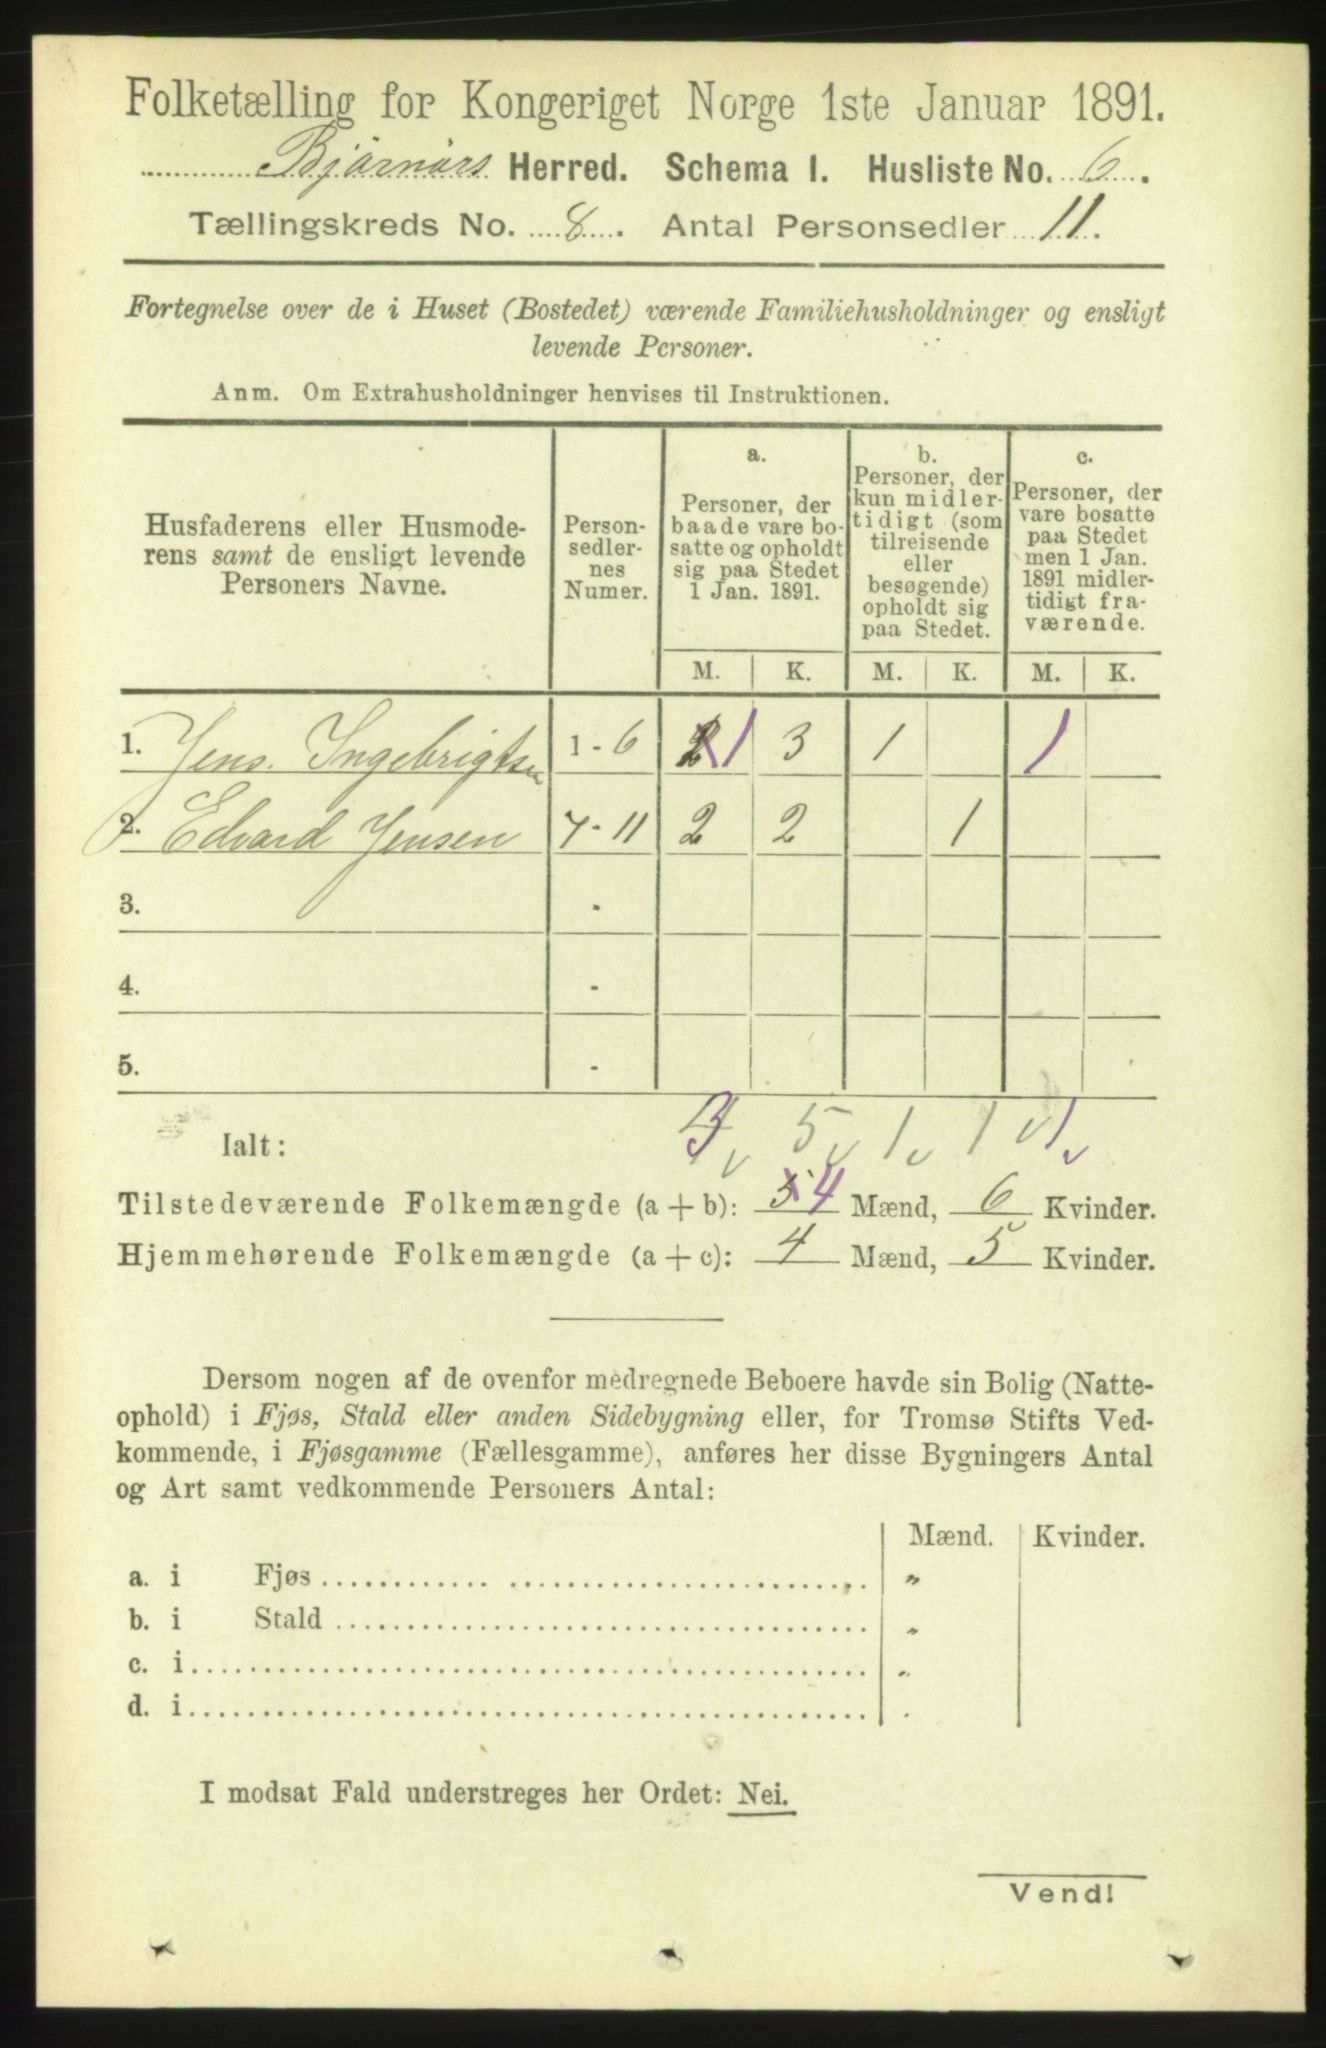 Folketælling for Kongeriget Norge 1ste Januar 1891.
Bjørnørs Herred. Schema I. Husliste No. 6.
Tællingskreds No. 8. Antal Personsedler 11.
Fortegnelse over de i Huset (Bostedet) værende Familiehusholdninger og ensligt
levende Personer.
Anm. Om Extrahusholdninger henvises til Instruktionen.
Husfaderens eller Husmode-
rens samt de ensligt levende
Personers Navne.
Person-
sedler-
nes
Numer.
a.
Personer, der
baade vare bo-
satte og opholdt
sig paa Stedet
1 Jan. 1891.
b.
Personer, der
kun midler-
tidigt (som
tilreisende
eller
besøgende)
opholdt sig
paa Stedet.
c.
Personer, der
vare bosatte
paa Stedet
men 1 Jan.
1891 midler-
tidigt fra-
værende.
M. K. M. K. M. K.
1. Jens. Ingebrigtsen 1 - 6 2 1 3 1 1
2. Edvard Jensen 7 - 11 2 2 1
3. -
4. -
5. -
Ialt: 3 5 1 1 1
Tilstedeværende Folkemængde (a + b): 5 4 Mænd, 6 Kvinder.
Hjemmehørende Folkemængde (a + c): 4 Mænd, 5 Kvinder.
Dersom nogen af de ovenfor medregnede Beboere havde sin Bolig (Natte-
ophold) i Fjøs, Stald eller anden Sidebygning eller, for Tromsø Stifts Ved-
kommende, i Fjøsgamme (Fællesgamme), anføres her disse Bygningers Antal
og Art samt vedkommende Personers Antal:
Mænd. Kvinder.
a. i Fjøs "
b. i Stald "
c. i "
d. i
I modsat Fald understreges her Ordet: Nei.
Vend!